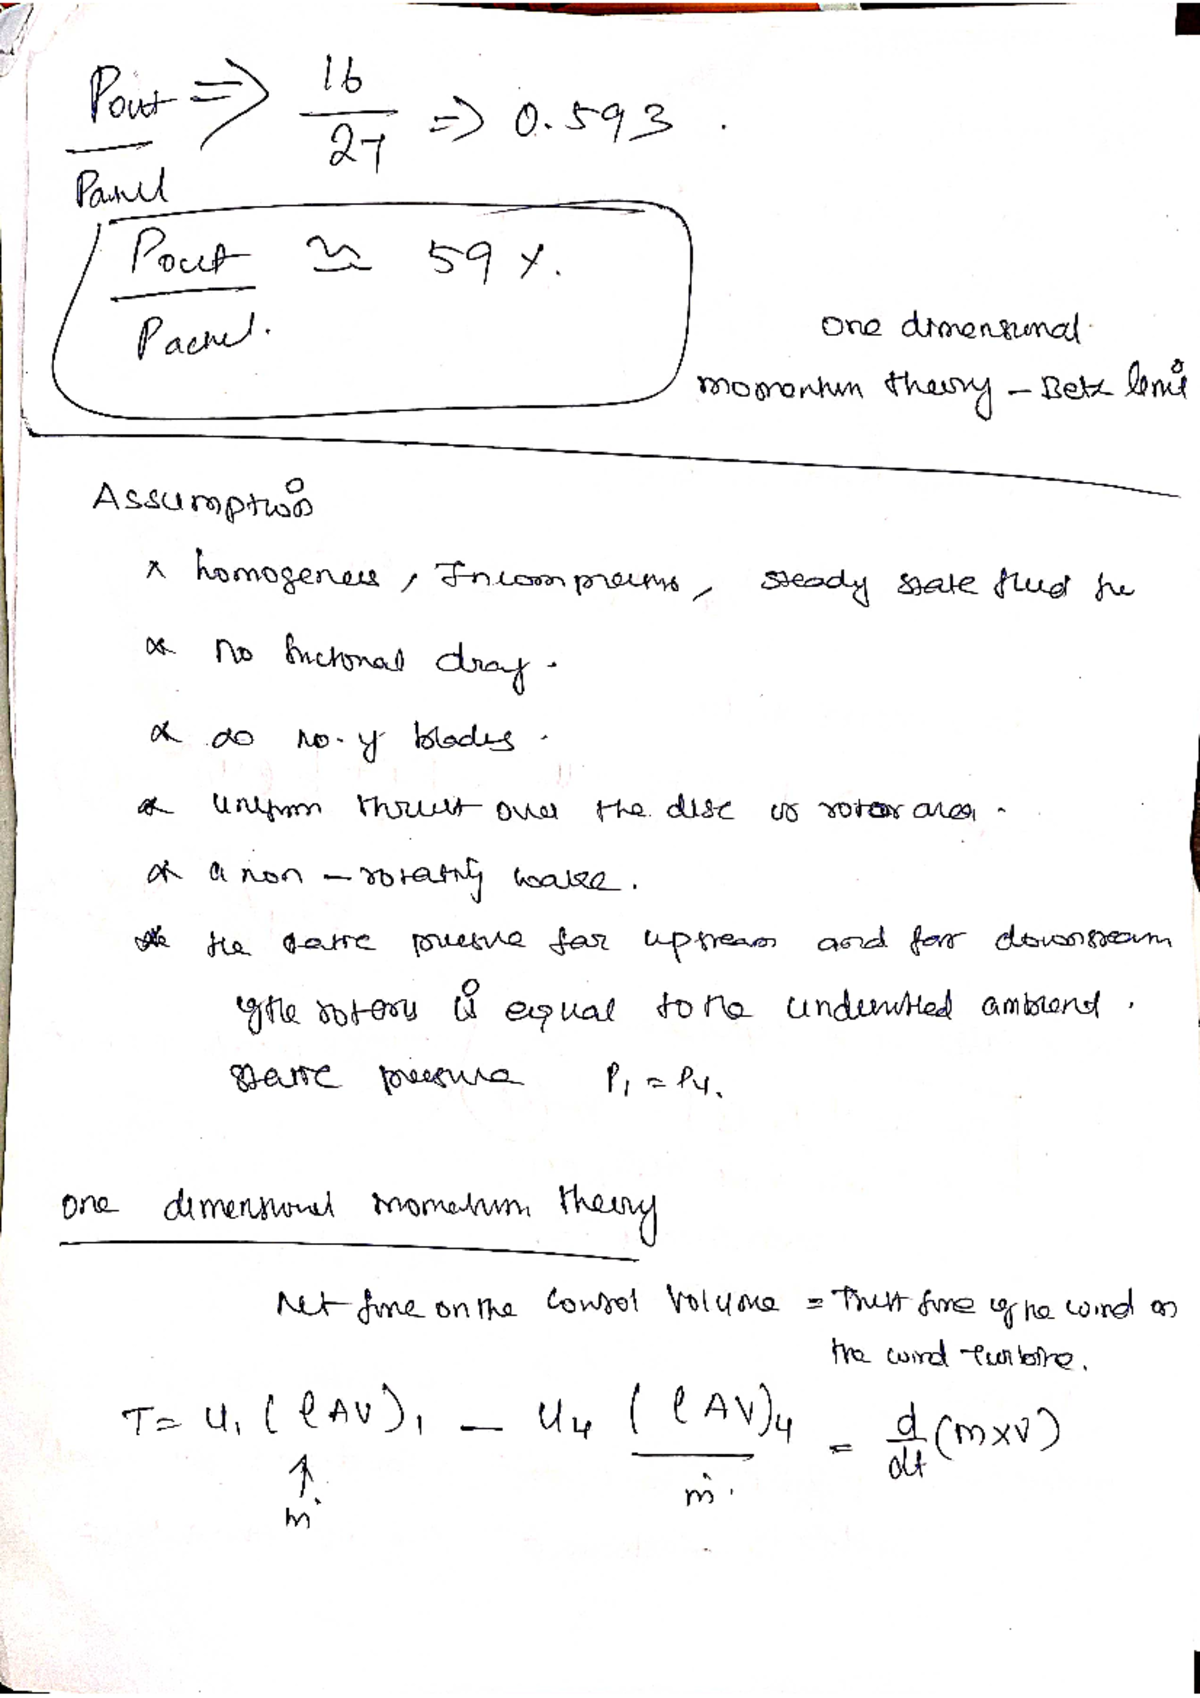 Pout => 16/27 => 0.593.
Pout ≃ 59 %.
one dimensional
momentum theory - Betz limit
Assumption
* homogenous, Incompressible, steady state fluid
* no frictional drag.
* ∞ no. of blades.
* uniform thrust over the disc or rotor area.
* a non-rotating wake.
* the static pressure far upstream and far downstream
of the rotor is equal to the ambient.
static pressure P1 = P4.
one dimensional momentum theory
Net force on the control volume = Thrust force of the wind on
the wind turbine.
T = U1 (ρAV)1 - U4 (ρAV)4 = d/dt (m×V)
ṁ ṁ.